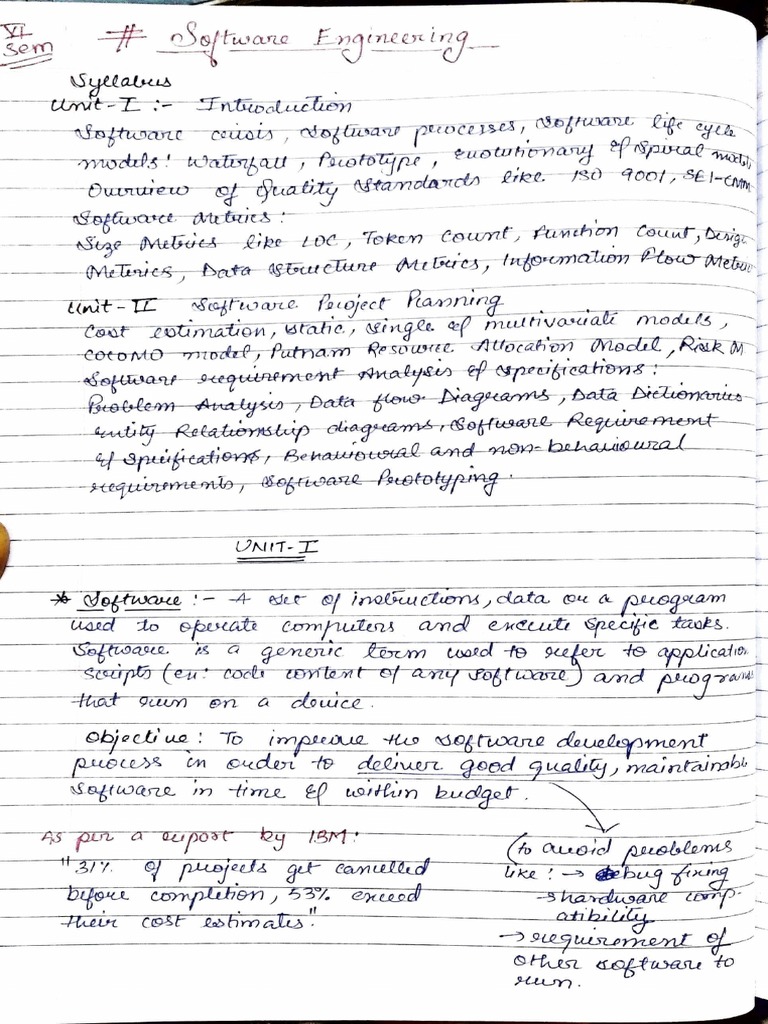 VI
sem
# Software Engineering
Syllabus
Unit-I :- Introduction
Software crisis, Software processes, Software life cycle
models: Waterfall, Prototype, evolutionary & Spiral models
Overview of Quality Standards like ISO 9001, SEI-CMM
Software Metrics:
Size Metrics like LOC, Token Count, Function Count, Design
Metrics, Data Structure Metrics, Information Flow Metrics
Unit-II Software Project Planning
Cost estimation, static, single & multivariate models,
COCOMO model, Putnam Resource Allocation Model, Risk M
Software requirement Analysis & specifications:
Problem Analysis, Data flow Diagrams, Data Dictionaries
entity Relationship diagrams, Software Requirement
& Specifications, Behavioural and non-behavioural
requirements, Software Prototyping.
UNIT-I
* Software :- A set of instructions, data or a program
used to operate computers and execute specific tasks.
Software is a generic term used to refer to application
scripts (en: code content of any software) and programs
that run on a device.
Objective: To improve the software development
process in order to deliver good quality, maintainable
software in time & within budget.
As per a report by IBM:
"31% of projects get cancelled
before completion, 53% exceed
their cost estimates."
(to avoid problems
like: → bug fixing
→ hardware comp-
atibility
→ requirement of
other software to
run.